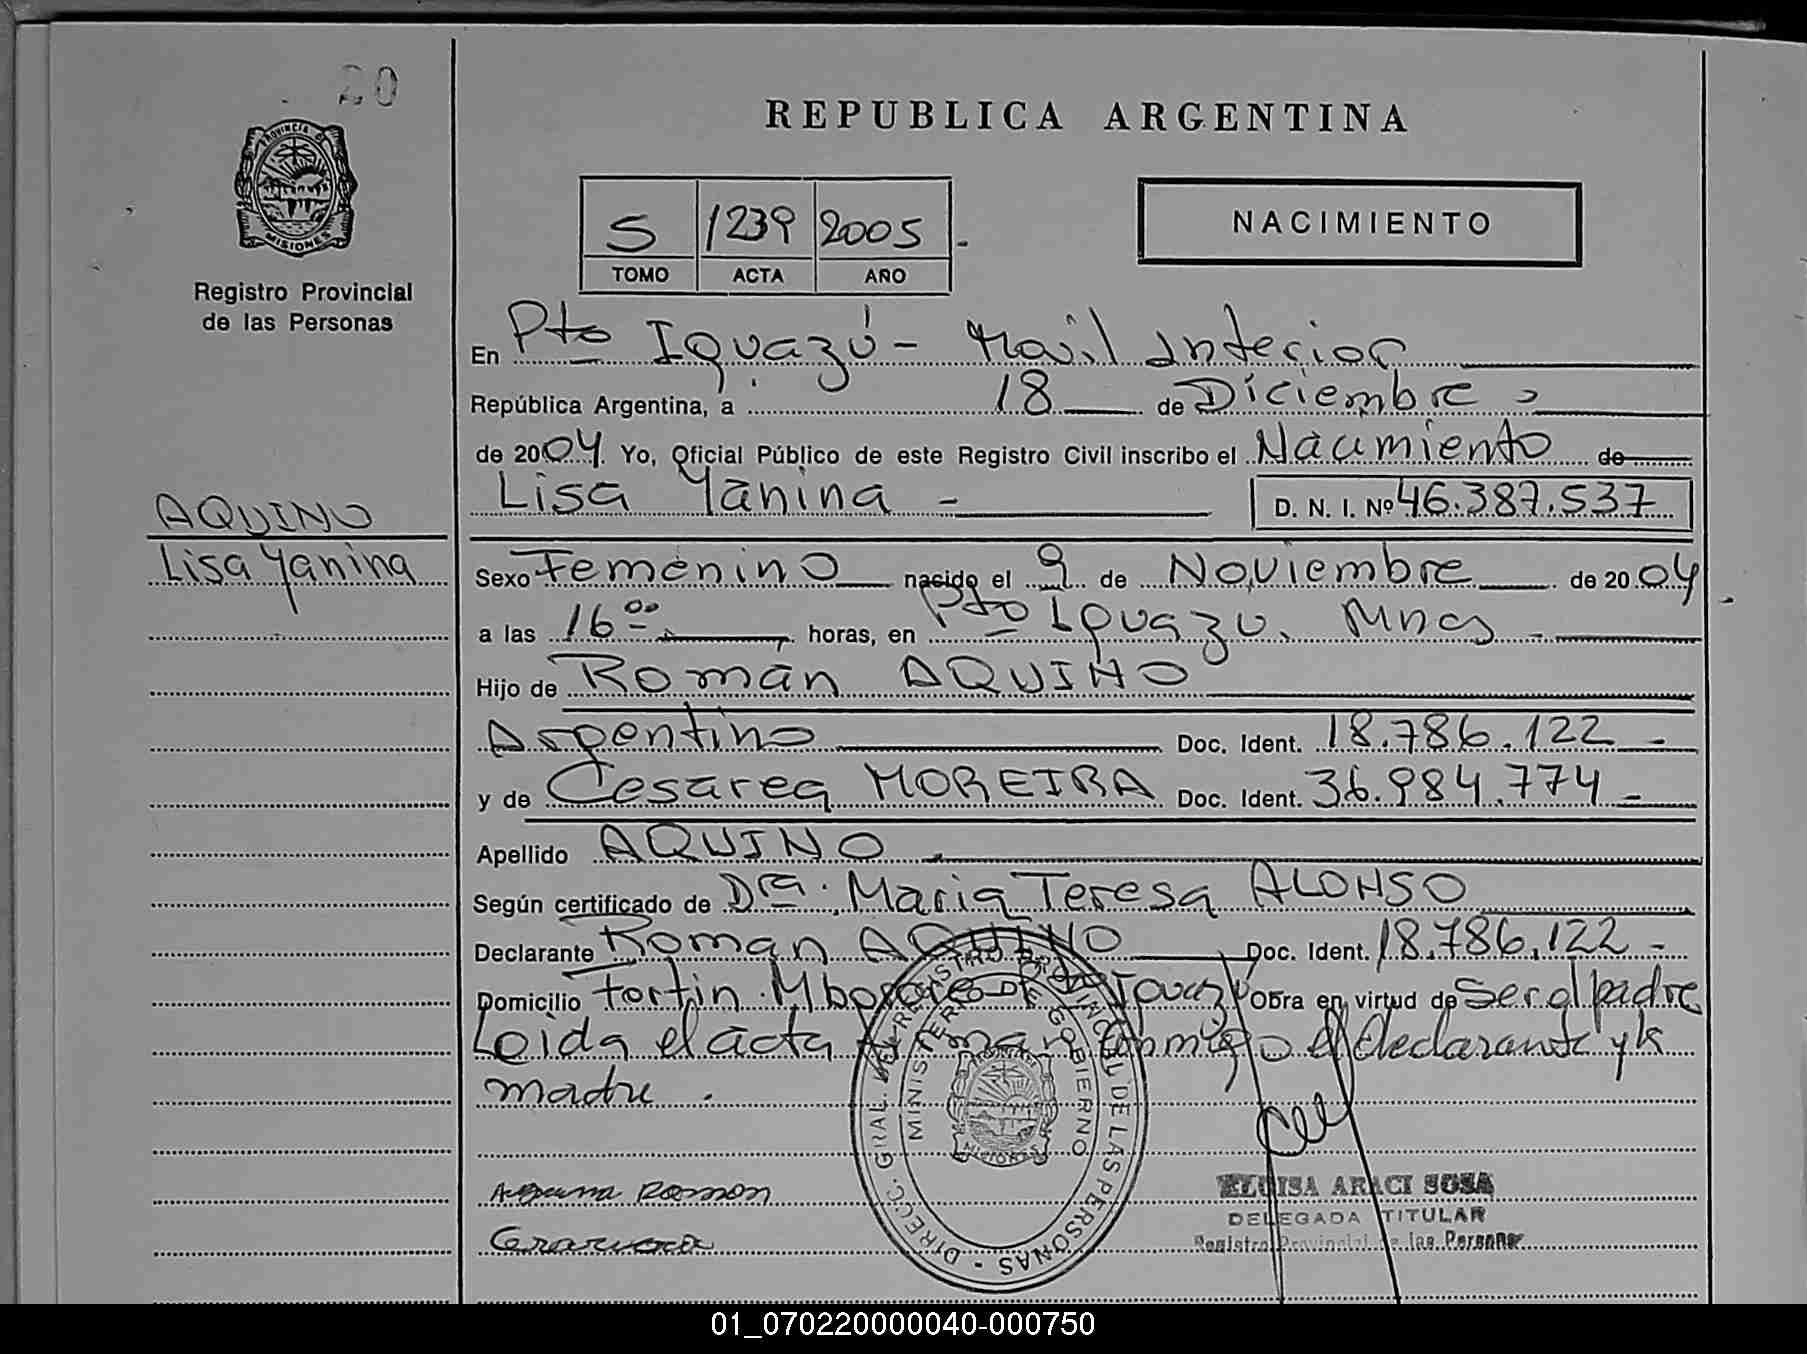 20
PROVINCIA DE
MISIONES
Registro Provincial
de las Personas
AQUINO
Lisa Yanina
REPUBLICA ARGENTINA
5 1239 2005
TOMO ACTA AÑO
NACIMIENTO
En Pto Iguazú - Movil Interior
República Argentina, a 18 de Diciembre
de 2004 Yo, Oficial Público de este Registro Civil inscribo el Nacimiento de
Lisa Yanina - D. N. I. Nº 46.387.537
Sexo Femenino nacido el 9 de Noviembre de 2004
a las 16 00 horas, en Pto Iguazu. Mnes -
Hijo de Román AQUINO
Argentino Doc. Ident. 18.786.122 -
y de Cesarea MOREIRA Doc. Ident. 36.984.774 -
Apellido AQUINO
Según certificado de Dra. Maria Teresa ALONSO
Declarante Roman AQUINO Doc. Ident. 18.786.122 -
Domicilio Fortin Mborore - Pto Iguazú Obra en virtud de Ser el padre
Leida el acta firman conmigo el declarante y la
madre .
DIREC. GRAL. DEL REGISTRO PROVINCIAL DE LAS PERSONAS -
MINISTERIO DE GOBIERNO
MISIONES
ELUISA ARACI SOSA
DELEGADA TITULAR
Registro Provincial de las Personas
01_070220000040-000750